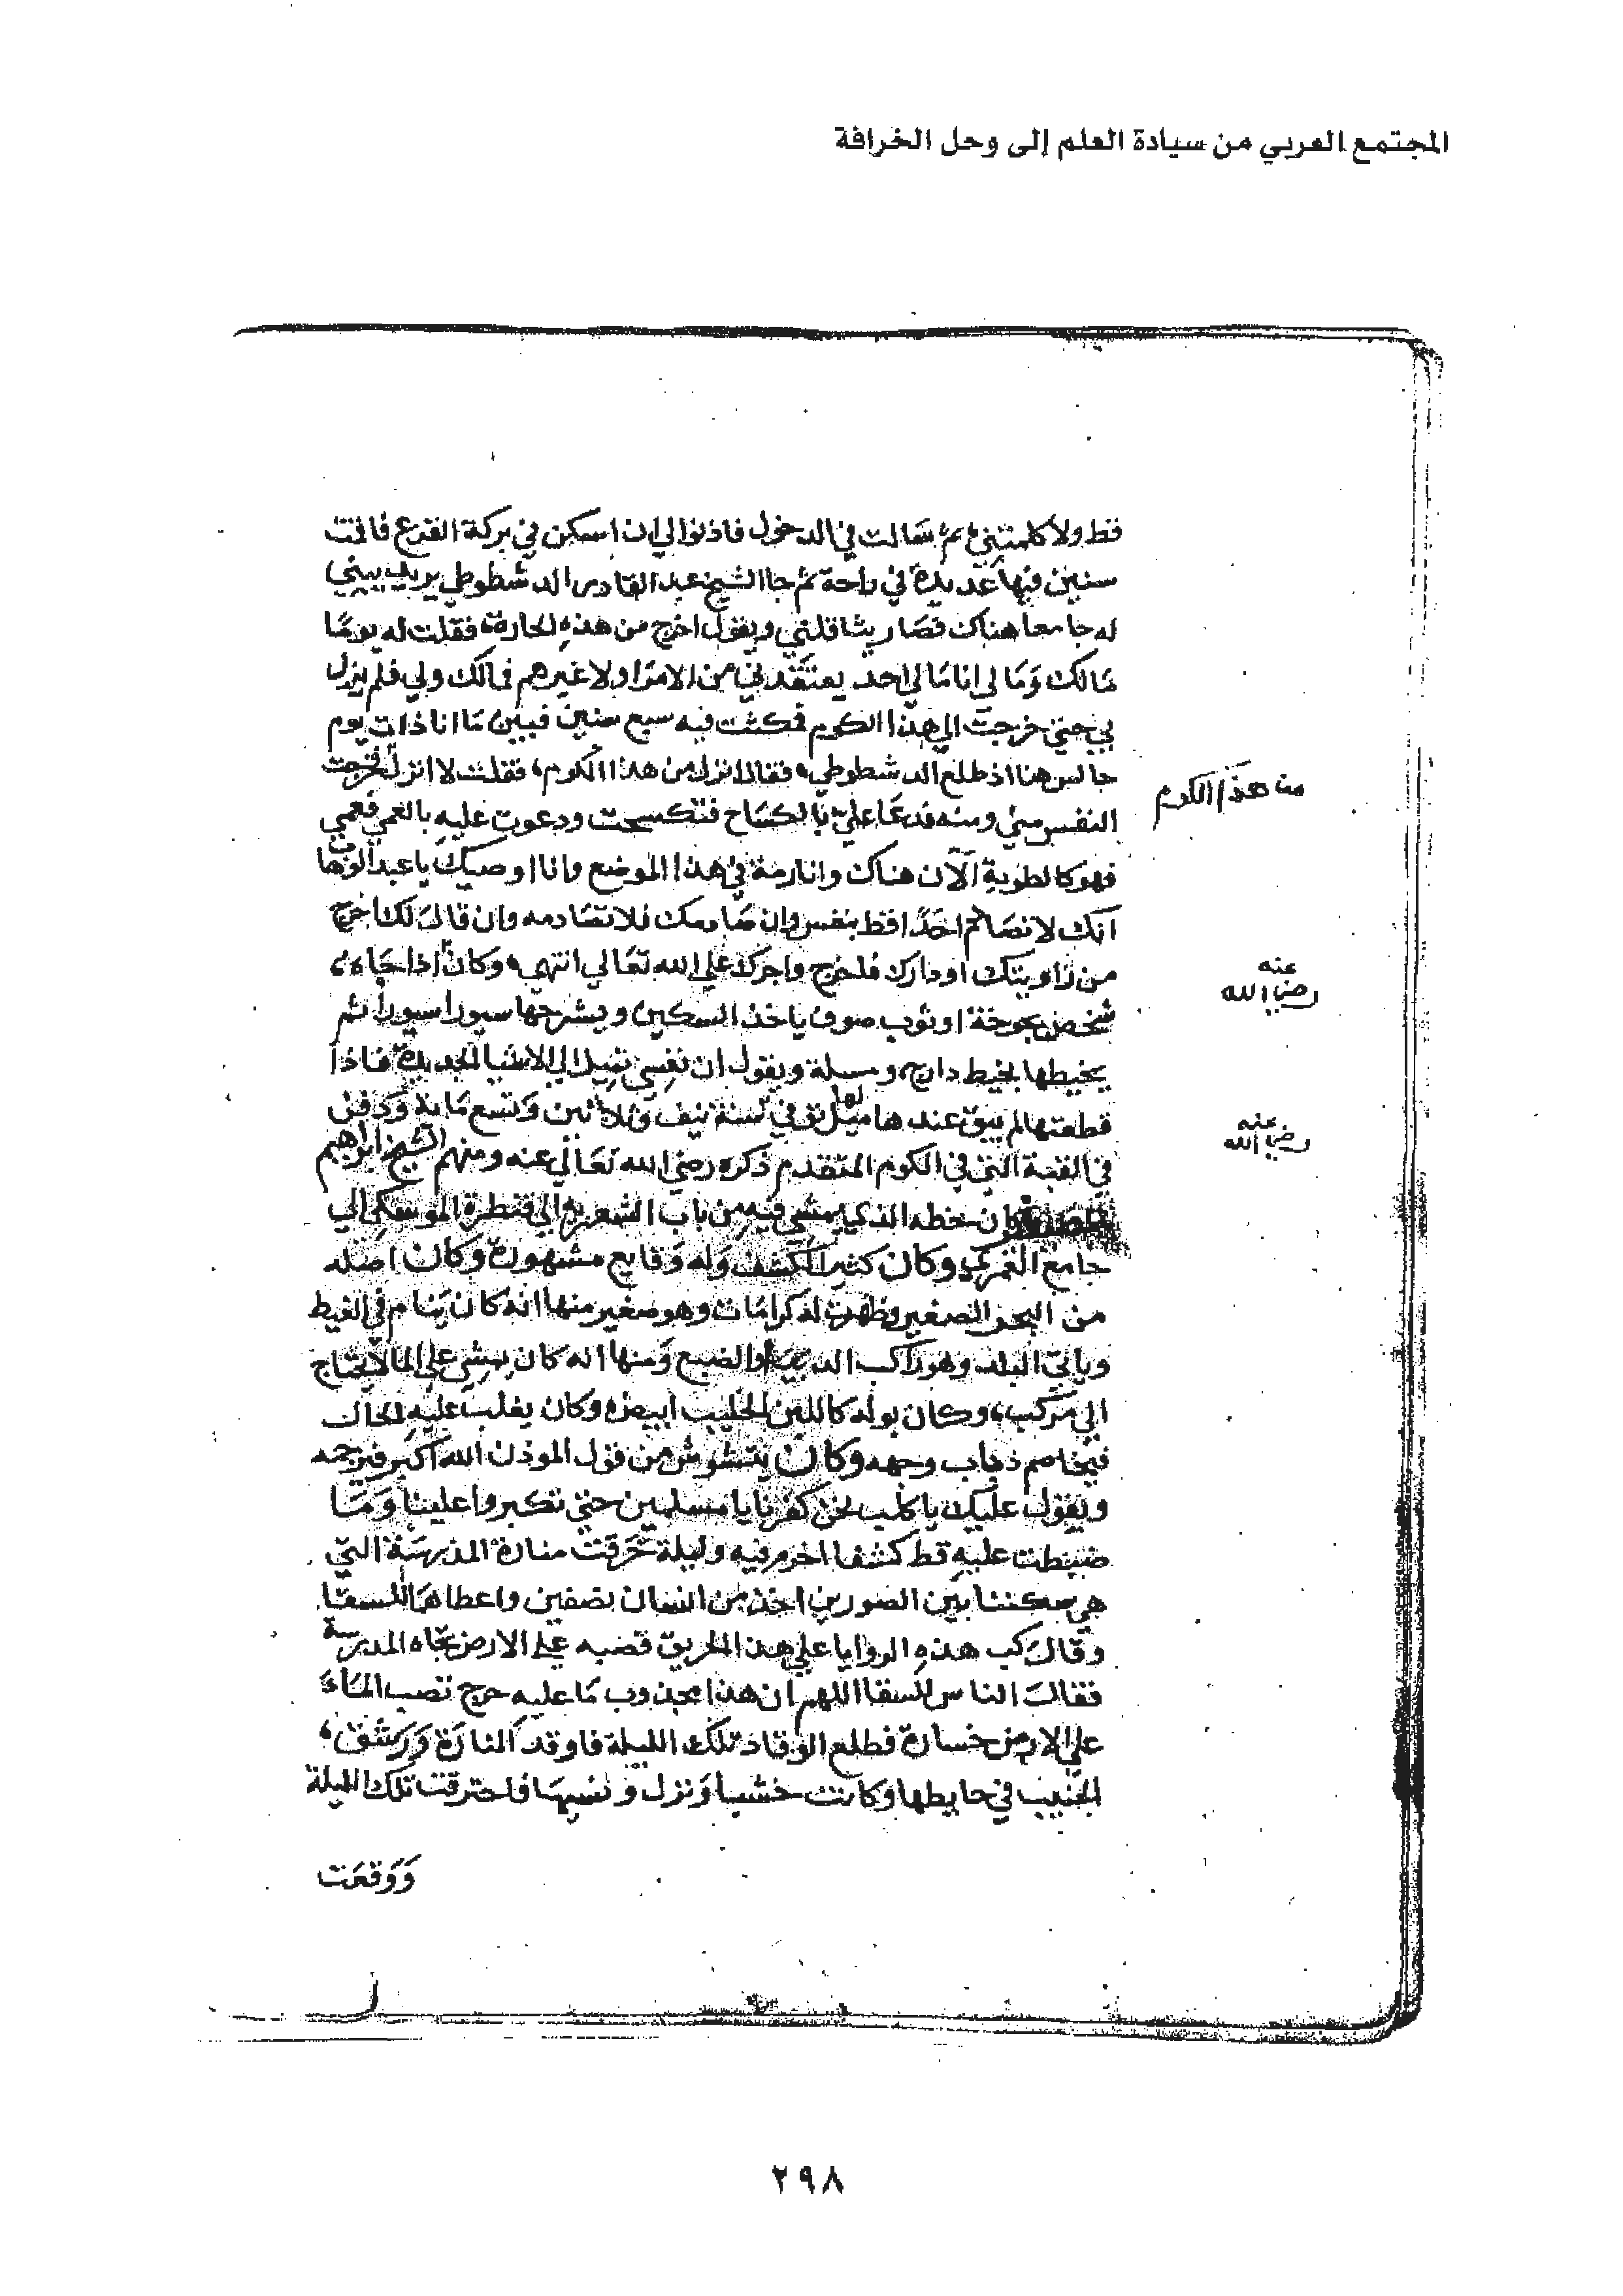 المجتمع العربي من سيادة العلم إلى وحل الخرافة
قط ولا كلمتني ثم سالت في الدخول فاذنوا لي ان اسكن في بركة القرع فاقمت
سنين فيها عديدة في راحة ثم جا الشيخ عبد القادر الدشطوطي يريد يبني
له جامعا هناك فصار يثاقلني ويقول اخرج من هذه الحارة فقلت له يوما
مالك وما لي انا ما لي احد يعتقدني من الامرا ولا غيرهم فمالك ولي فلم يزل
بي حتي خرجت الي هذا الكوم فمكثت فيه سبع سنين فبين ما انا ذات يوم
جالس هنا اذ طلع الدشطوطي فقال انزل من هذا الكوم فقلت لا انزل فخرجت
النفس مني ومنه فدعا علي بالكساح فتكسحت ودعوت عليه بالعمي فعمي
فهو كالطوبة الآن هناك وانا رمة في هذا الموضع وانا اوصيك يا عبد الوهاب
انك لا تصادم احدا قط بنفس وان صادمك فلا تصادمه وان قال لك اخرج
من زاويتك او دارك فاخرج واجرك علي الله تعالي انتهي وكان اذا جاءه
شخص بجوخة او ثوب صوف ياخذ السكين ويشرحها سيورا سيورا ثم
يخيطها بخيط دارج ومسلة ويقول ان نفسي تميل الي الاشيا الجديدة فاذا
قطعتها لم يبق عندها ميل لها توفي سنة نيف وثلاثين وتسع ماية ودفن
في القبة التي في الكوم المتقدم ذكره رضي الله تعالي عنه ومنهم الشيخ ابراهيم
كان خطه الذي يمشي فيه من باب الشعرية الي قنطرة الموسكي الي
جامع الغمري وكان كثير الكشف وله وقايع مشهورة وكان اصله
من البحر الصغير وظهرت له كرامات وهو صغير منها انه كان ينام في الغيط
وياتي البلد وهو راكب الديب او الضبع ومنها انه كان يمشي علي الما لا يحتاج
الي مركب وكان بوله كاللبن الحليب ابيض وكان يغلب عليه الحال
فيخاصم ذباب وجهه وكان يتشوش من قول الموذن الله اكبر فيرجمه
ويقول عليك يا كلب نحن كفرنا يا مسلمين حتي تكبروا علينا وما
ضبطت عليه قط كشفا اخرم فيه وليلة حرقت منارة المدرسة التي
هي سكننا بين الصورين اخذ من انسان نصفين واعطاها للسقا
وقال كب هذه الروايا علي هذا الحريق فصبه علي الارض تجاه المدرسة
فقال الناس للسقا اللهم ان هذا مجذوب ما عليه حرج تصب الماء
علي الارض خسارة فطلع الوقاد تلك الليلة فاوقد المنارة ورشق
الجنيب في حايطها وكانت خشبا ونزل ونسيها فاحترقت تلك الليلة
ووقعت
من هذا الكوم
رضي الله عنه
رضي الله عنه
٢٩٨